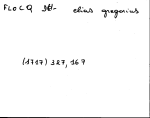 FLOCQ elias gregorius
(1717) 327, 167